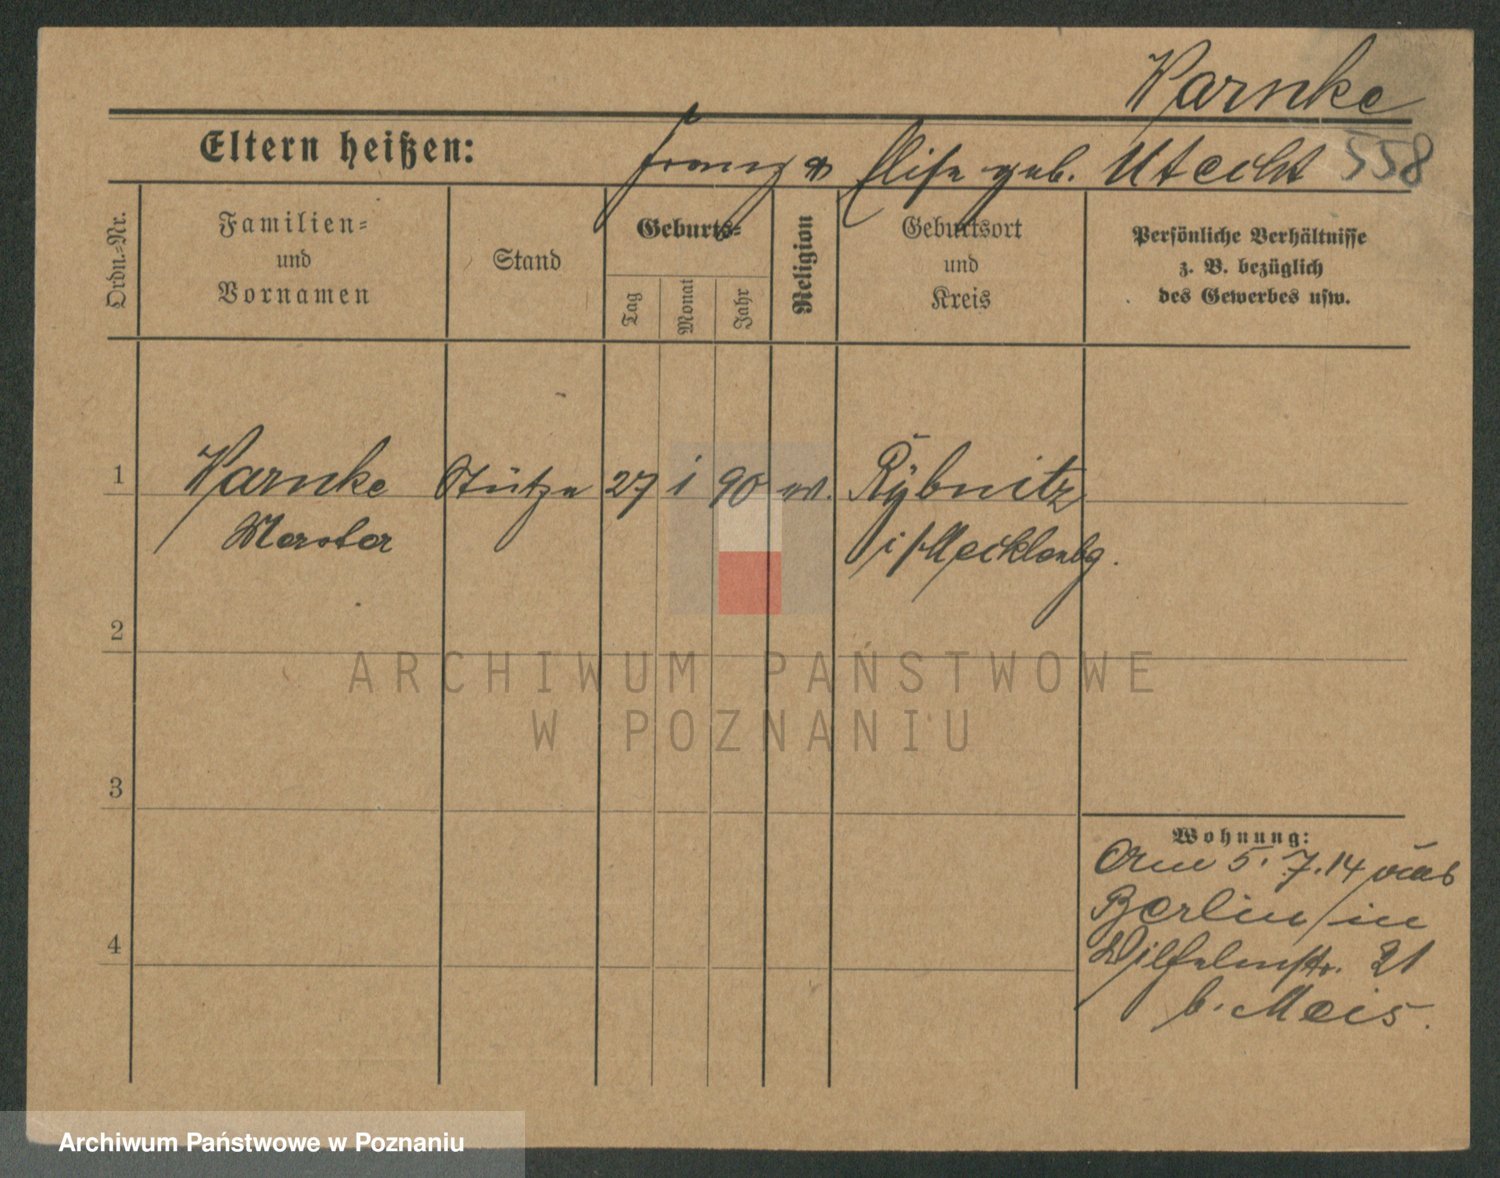 Varnke
Eltern heißen: Franz & Elise geb. Utecht 558
Ordn.-Nr.
Familien-
und
Vornamen
Stand
Geburts-
Tag
Monat
Jahr
Religion
Geburtsort
und
Kreis
Persönliche Verhältnisse
z. B. bezüglich
des Gewerbes usw.
1 Varnke Stütze 27 1 90 ev. Rybnitz
i/Mecklenbg.
2
ARCHIWUM PAŃSTWOWE
W POZNANIU
3
Wohnung:
Am 5.7.14 aus
Berlin in
4
Wilhelmstr. 21
b. Meis.
Archiwum Państwowe w Poznaniu